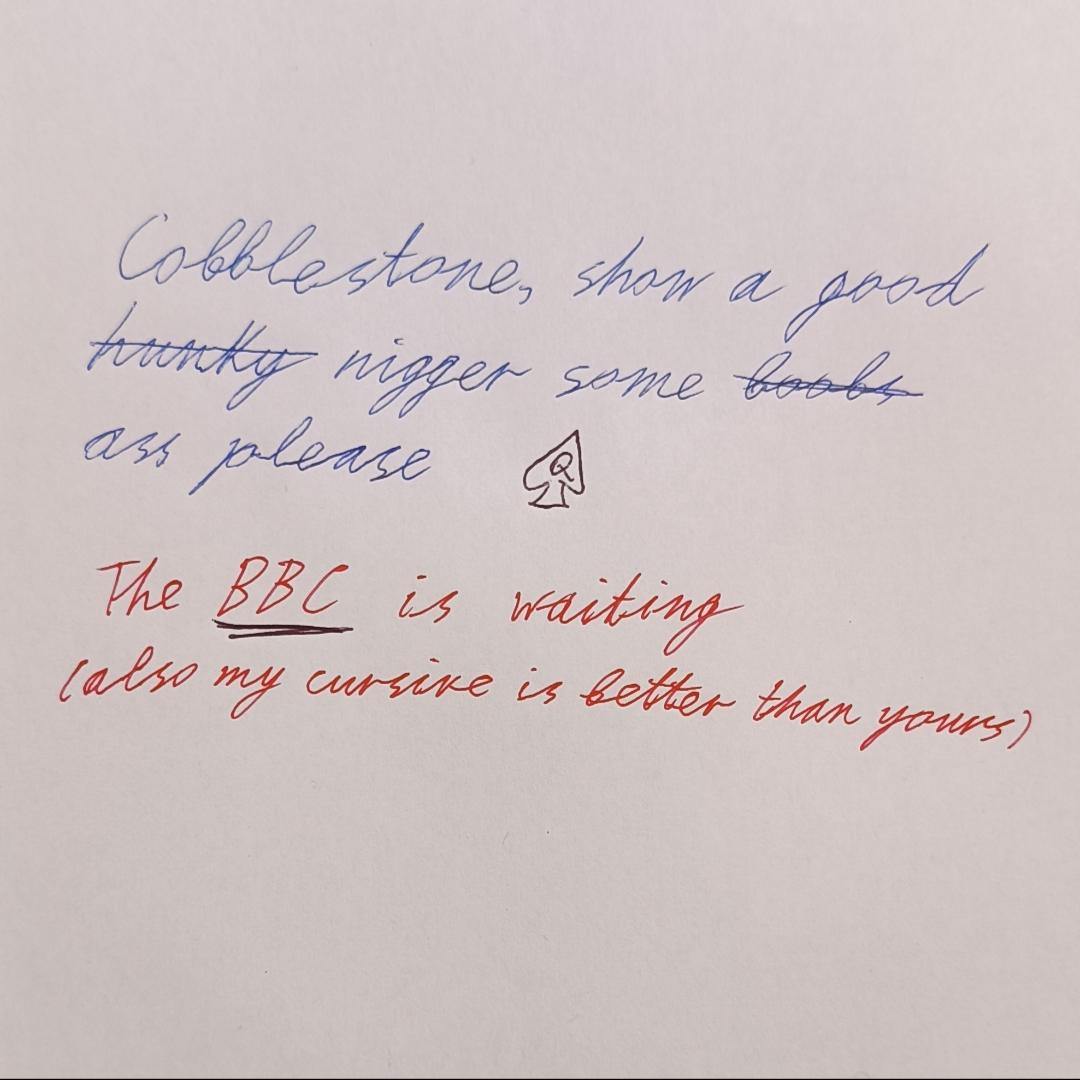 Cobblestone, show a good
hunky nigger some boobs
ass please
Q
The BBC is waiting
(also my cursive is better than yours)